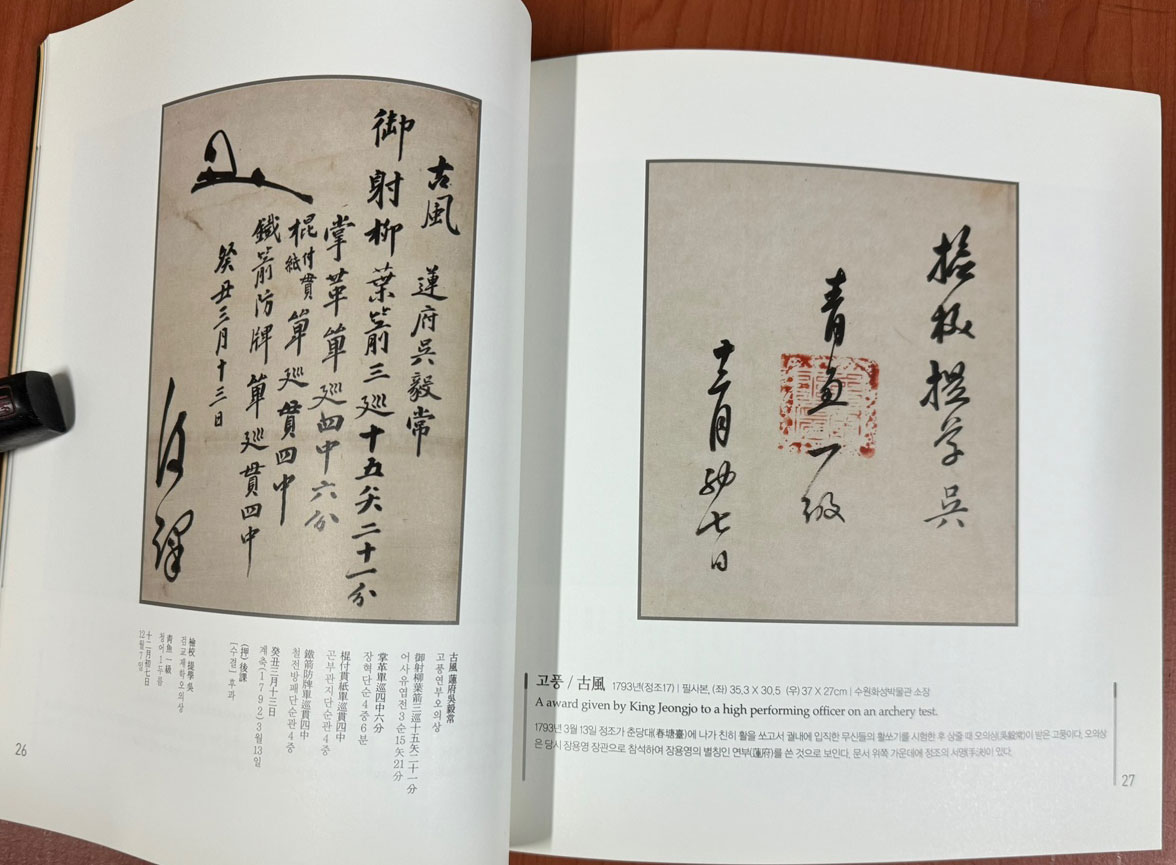 古風 蓮府吳毅常
御射柳葉箭三廵十五矢二十一分
掌革單廵四中六分
棍付紙貫單廵貫四中
鐵箭防牌單廵貫四中
癸丑三月十三日
後課
古風 蓮府吳毅常
고풍연부오의상
御射柳葉箭三巡十五矢二十一分
어사유엽전3순15矢21分
掌革單巡四中六分
장혁단순4중6분
棍付貫紙單巡貫四中
곤부관지단순관4중
鐵箭防牌單巡貫四中
철전방패단순관4중
癸丑三月十三日
계축(1792)3월13일
(押)後課
[수결] 후과
檢校 提學 吳
검교제학오의상
靑魚 一級
청어1두름
十二月初七日
12월7일
26
檢校提學吳
青魚一級
十二月初七日
고풍 / 古風 1793년(정조17) | 필사본, (좌) 35,3 X 30,5 (우) 37 X 27cm | 수원화성박물관 소장
A award given by King Jeongjo to a high performing officer on an archery test.
1793년 3월 13일 정조가 춘당대(春塘臺)에 나가 친히 활을 쏘고서 궐내에 입직한 무신들의 활쏘기를 시험한 후 상줄 때 오의상(吳毅常)이 받은 고풍이다. 오의상
은 당시 장용영 장관으로 참석하여 장용영의 별칭인 연부(蓮府)를 쓴 것으로 보인다. 문서 위쪽 가운데에 정조의 서명(手決)이 있다.
27